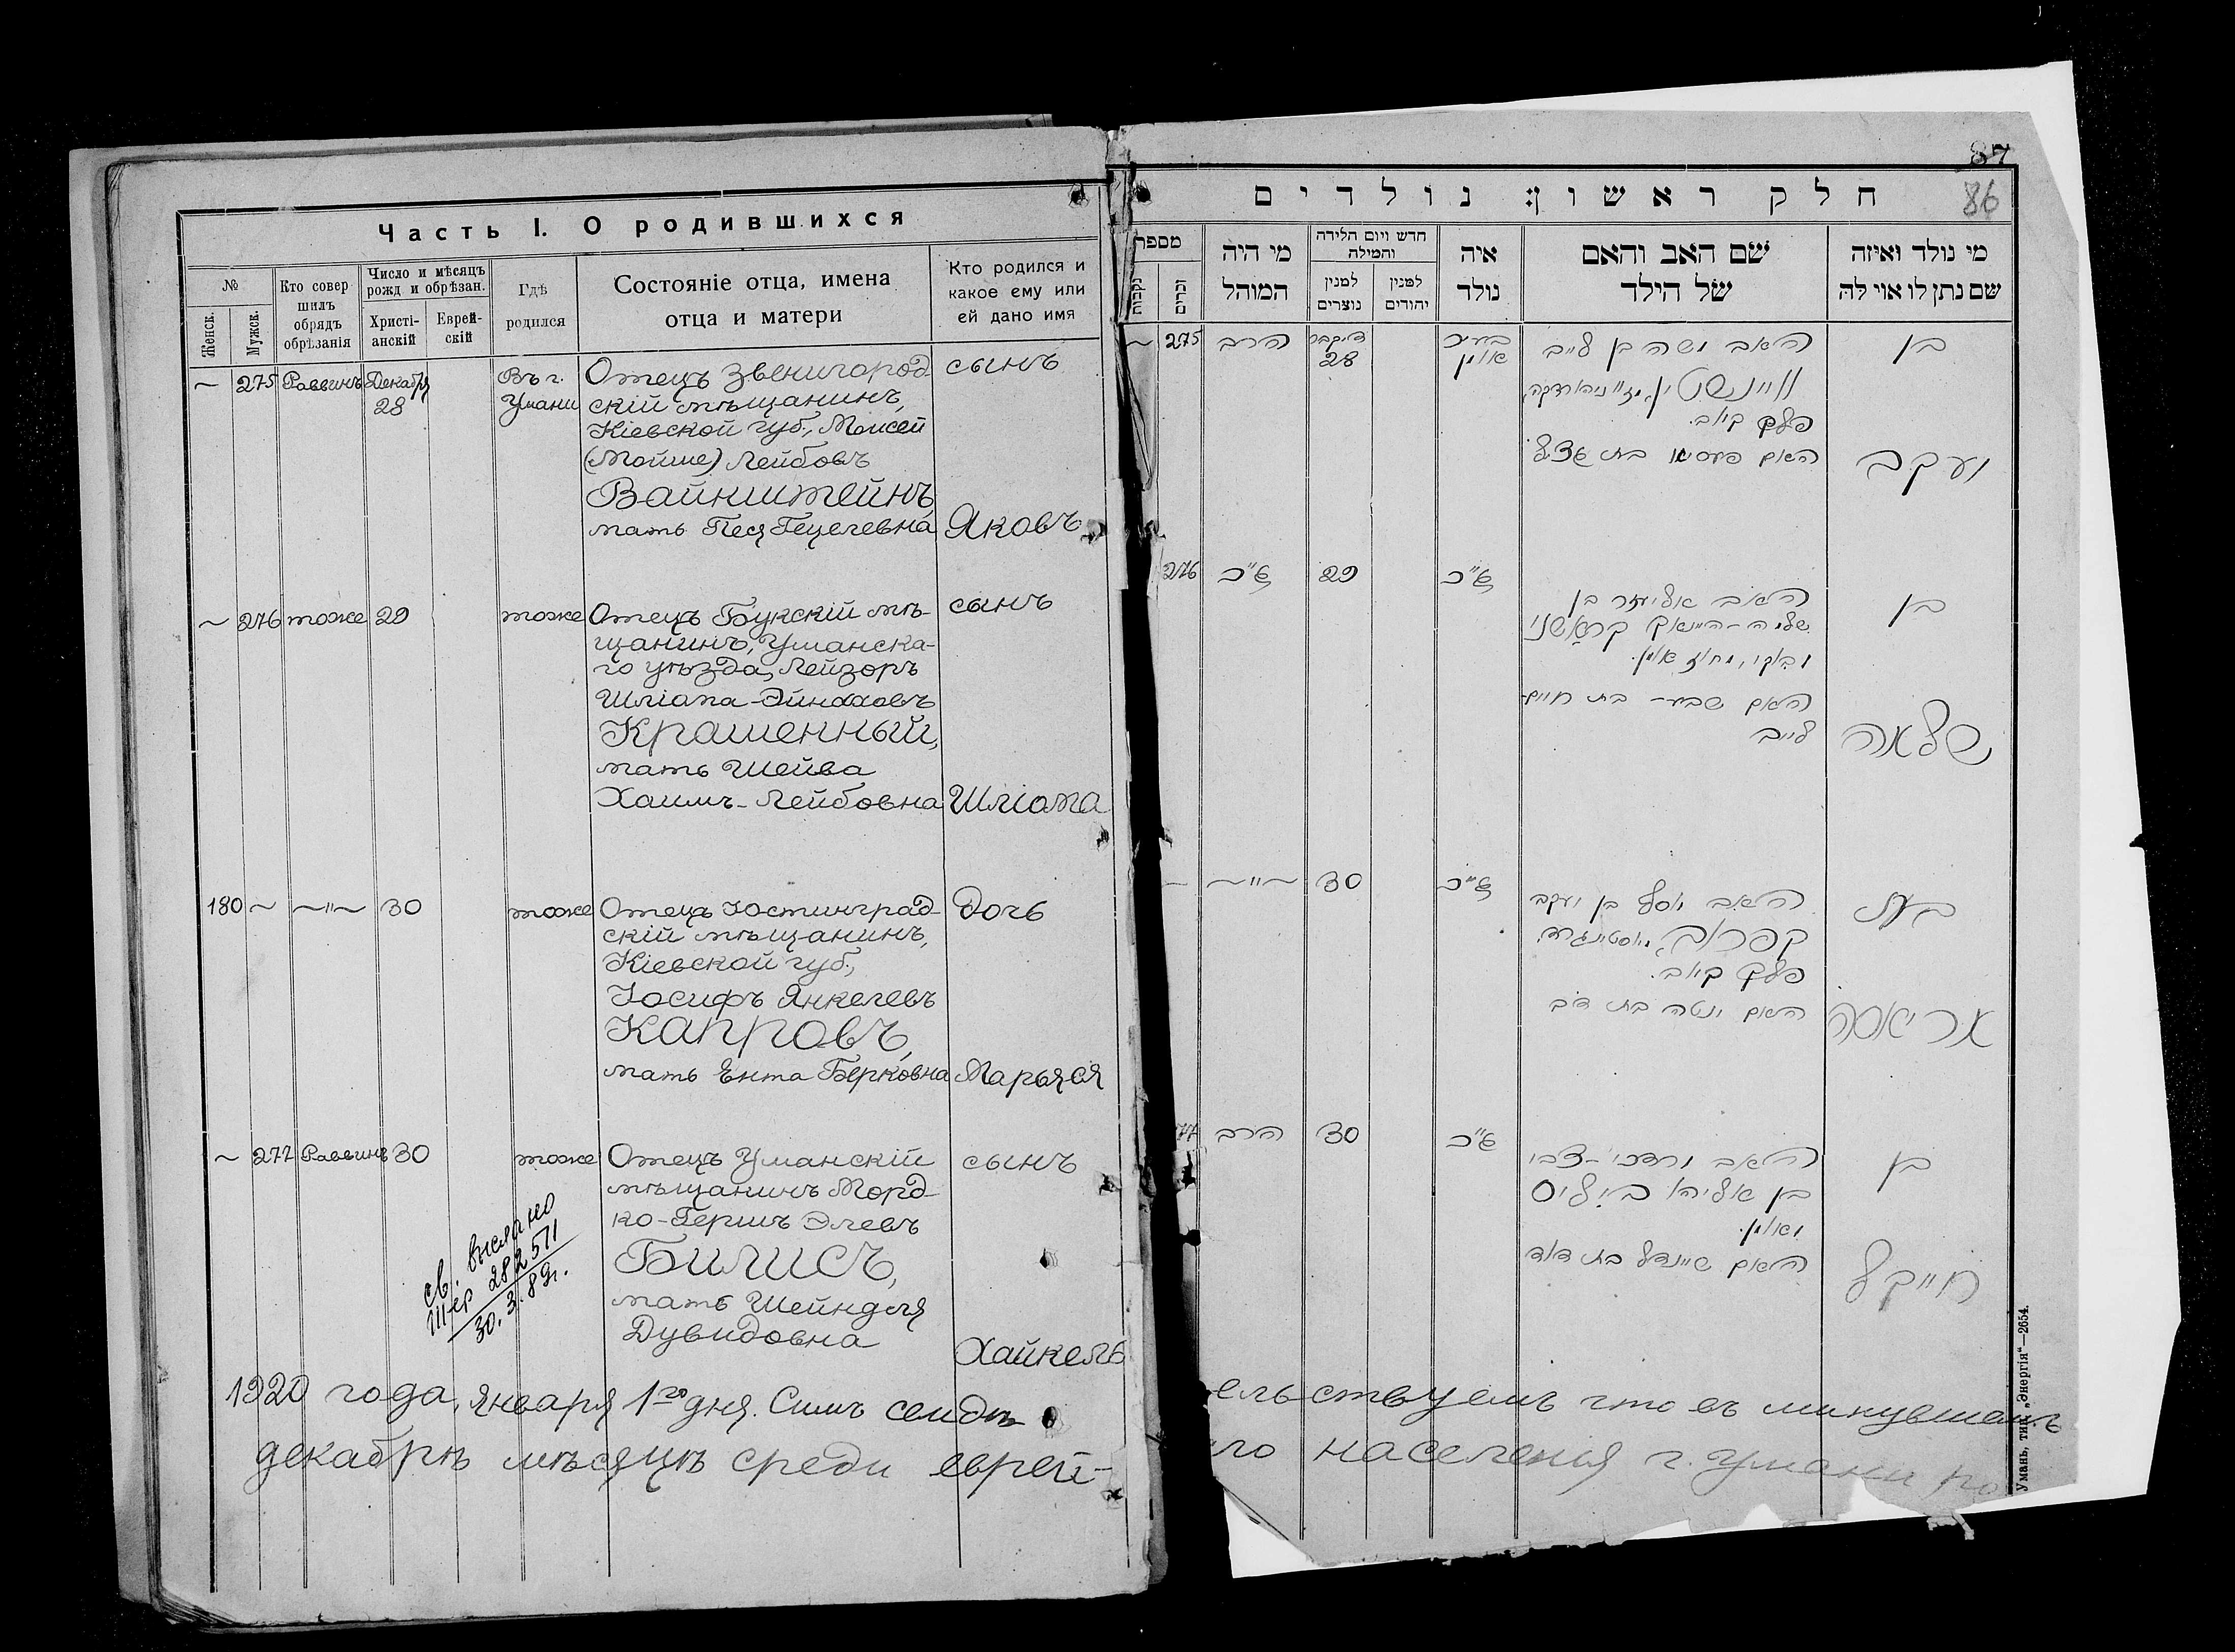 Часть I. О родившихся
№
Женск.
Мужск.
Кто совер
шилъ
обрядъ
обрѣзанія
Число и мѣсяцъ
рожд и обрѣзан.
Христі-
анскій
Еврей-
скій
Гдѣ
родился
Состояніе отца, имена
отца и матери
Кто родился и
какое ему или
ей дано имя
~ 275 Раввинъ Декабря
28
Въ г.
Умани
Отецъ Звенигород-
скій мѣщанинъ,
Кіевской губ., Моисей
(Мойше) Лейбовъ
Вайнштейнъ,
мать Песя Гецелевна
сынъ
Яковъ
~ 276 тоже 29 тоже
Отецъ Букскій мѣ-
щанинъ, Уманска-
го уѣзда, Лейзоръ
Шліома-Эйнаховъ
Крашенный,
мать Шейва
Хаимъ-Лейбовна
сынъ
Шліома
180 ~ ~"~ 30 тоже
Отецъ Юстинград-
скій мѣщанинъ,
Кіевской губ.,
Іосифъ Янкелевъ
Капровъ,
мать Ента Берковна
Дочь
Марьяся
~ 277 Раввинъ 30 тоже
Отецъ Уманскій
мѣщанинъ Морд-
ко-Гершъ Элевъ
Билисъ,
мать Шейндля
Дувидовна
сынъ
Хайкель
св. выслано
282571
30.3.89г.
1920 года, января 1го дня. Симъ свидѣ
декабрѣ мѣсяцѣ среди еврей-
87
86
חלק ראשון: נולדים
מספר
נקבות
זכרים
מי היה
המוהל
חדש ויום הלידה
והמילה
למנין
נוצרים
למנין
יהודים
איה
נולד
שם האב והאם
של הילד
מי נולד ואיזה
שם נתן לו או לה
~ 275 הרב
דיקבר
28
בעיר
אומן
האב משה בן לייב
וויינשטיין,
פלך קיוב.
האם פעסיא בת געצל
בן
יעקב
276 כנ"ל 29 כנ"ל
האב אליעזר בן
שלמה-היינאך קראשני
האם שבע- בת חיים
לייב
בן
שלמה
~ ~"~ 30 כנ"ל
האב יוסף בן יעקב
קפראוב,
פלך קיוב.
האם יענטה בת דוב
בת
מריאסה
77 הרב 30 כנ"ל
האב מרדכי-צבי
בן אליהו ביליס
מאומן.
האם שיינדל בת דוד
בן
חייקל
ельствуемъ что въ минувшемъ
го населенія г. Умани ро
Умань, тип. „Энергія“—2654.